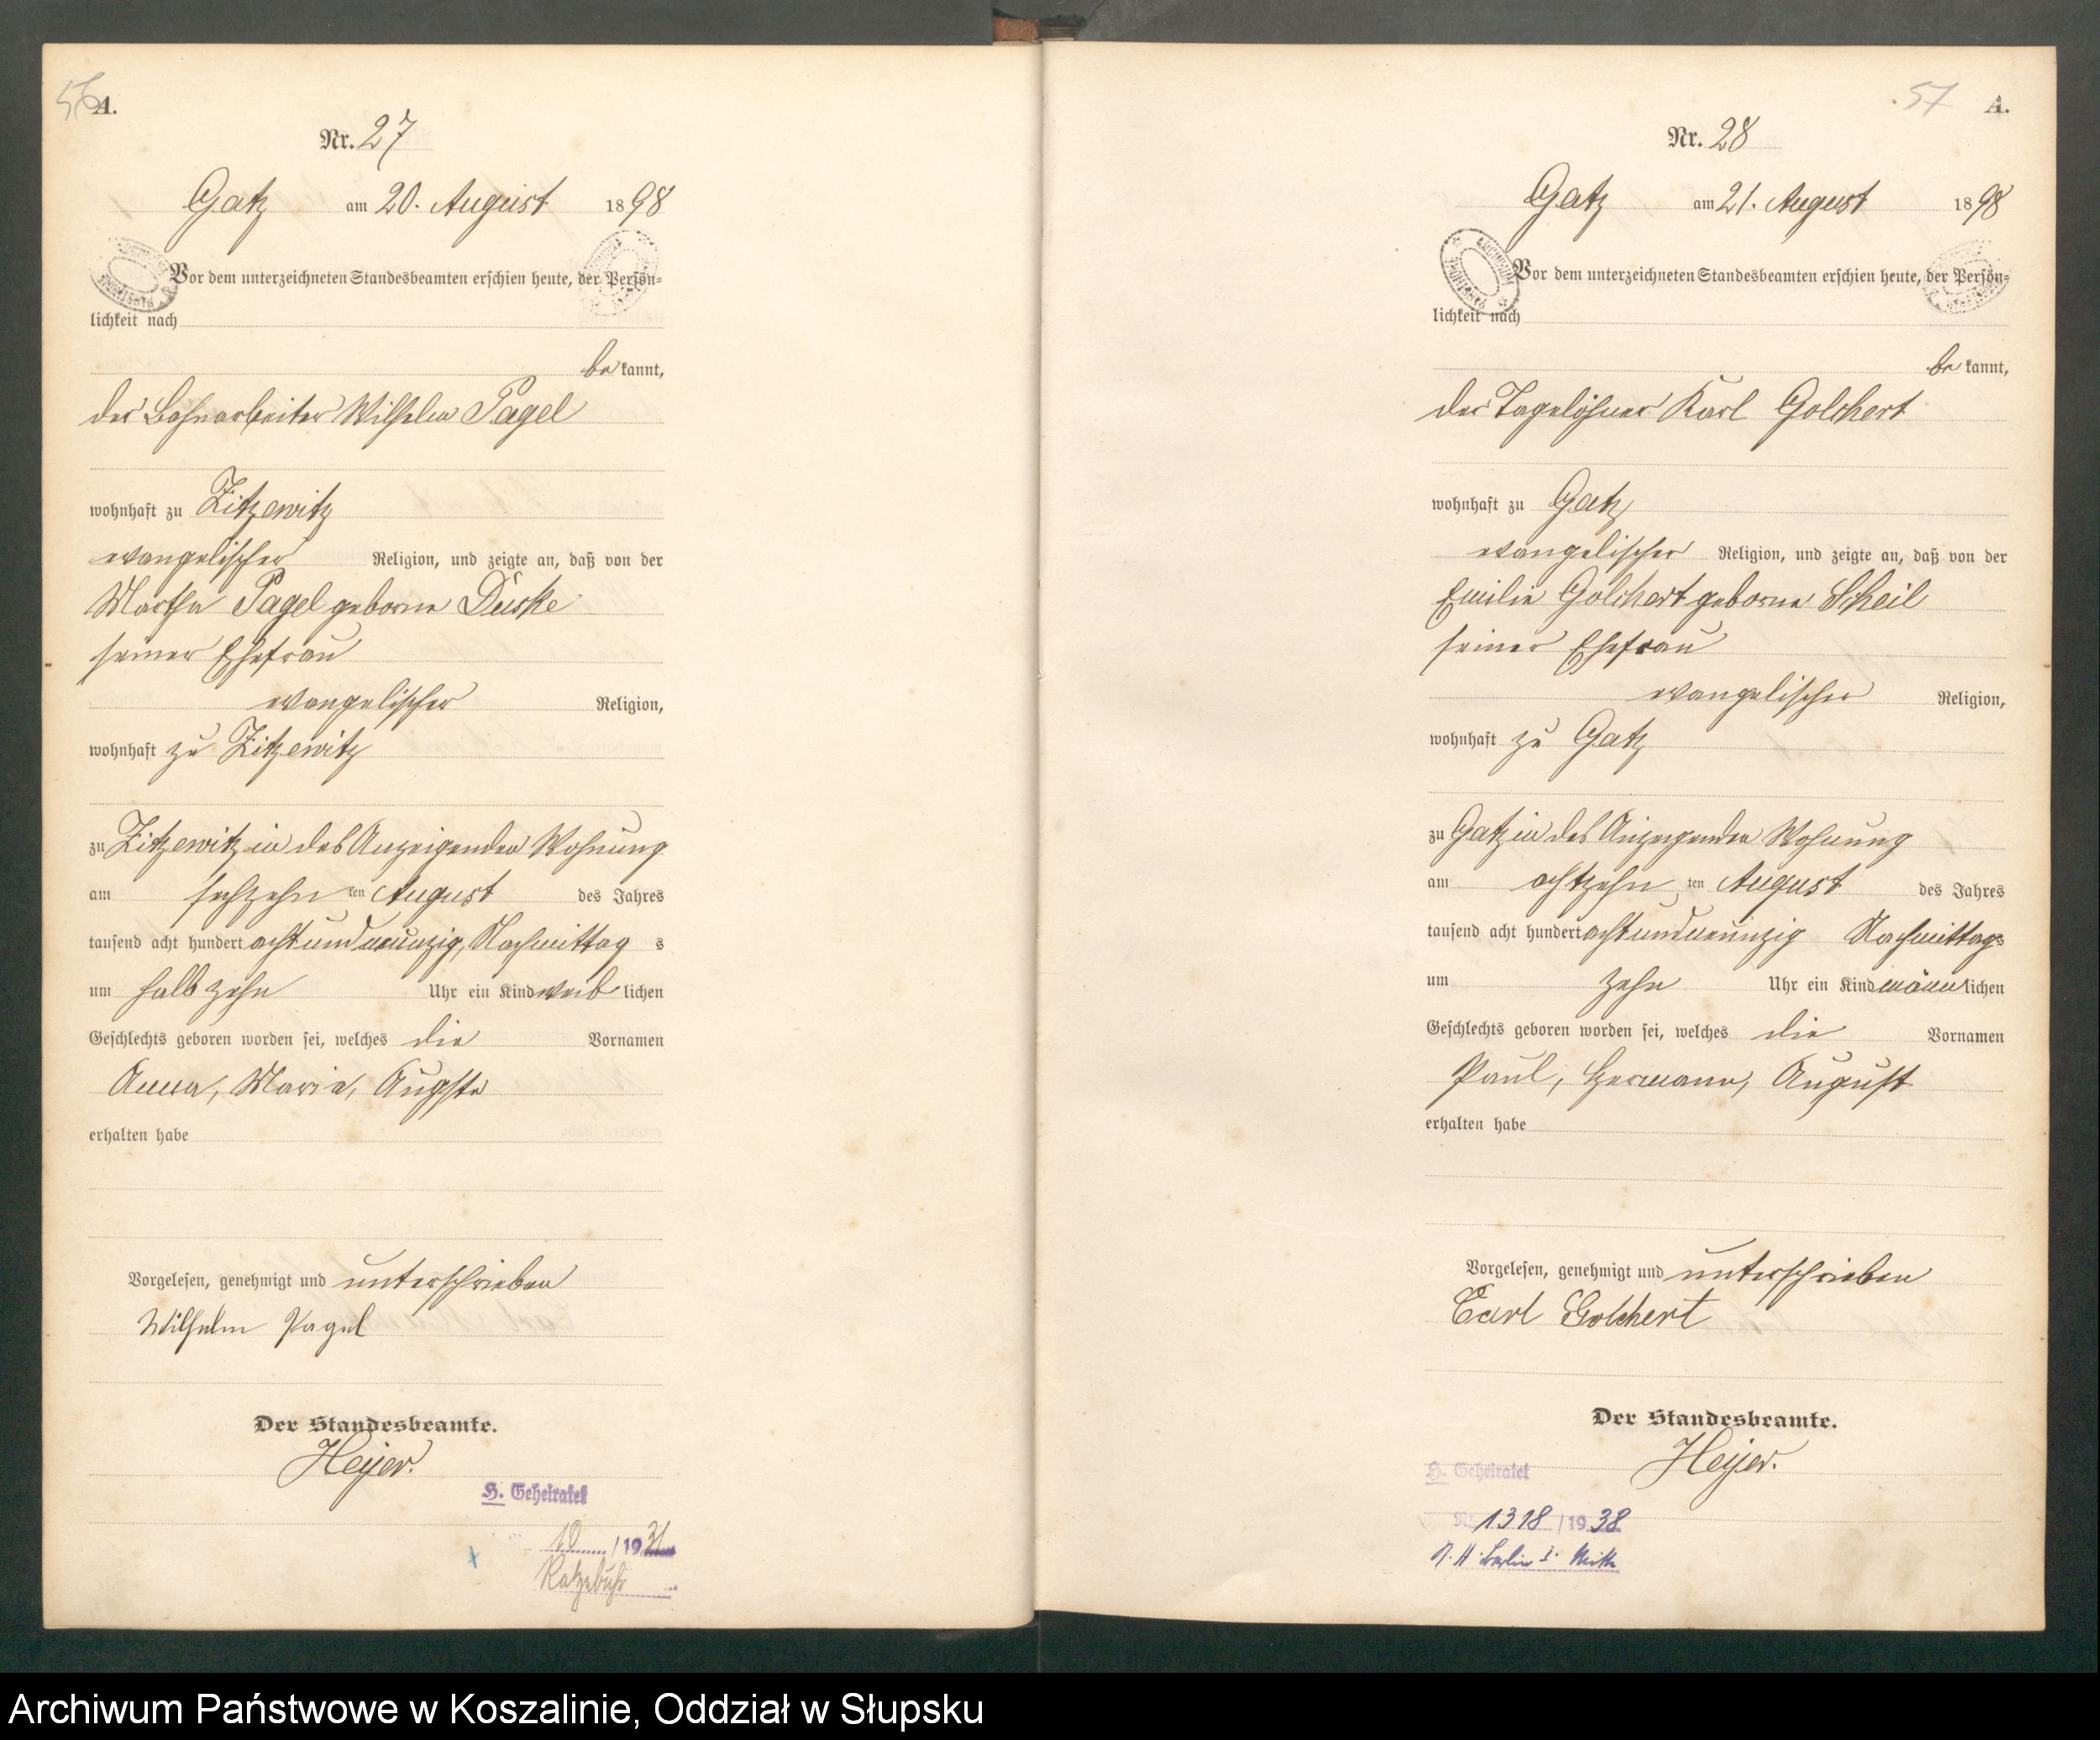 56
A.
Nr. 27
Gatz am 20. August 1898
Vor dem unterzeichneten Standesbeamten erschien heute, der Persön-
lichkeit nach
be kannt,
der Bahnarbeiter Wilhelm Pagel
wohnhaft zu Zitzewitz
evangelischer Religion, und zeigte an, daß von der
Martha Pagel geborne Duske
seiner Ehefrau
evangelischer Religion,
wohnhaft zu Zitzewitz
zu Zitzewitz in des Anzeigenden Wohnung
am sechzehn ten August des Jahres
tausend acht hundert achtundneunzig, Nachmittag s
um halb zehn Uhr ein Kind weib lichen
Geschlechts geboren worden sei, welches die Vornamen
Anna, Marie, Auguste
erhalten habe
Vorgelesen, genehmigt und unterschrieben
Wilhelm Pagel
Der Standesbeamte.
Heyer.
H. Geheiratet
10 / 1931
Ratzebuhr
57
A.
Nr. 28
Gatz am 21. August 1898
Vor dem unterzeichneten Standesbeamten erschien heute, der Persön-
lichkeit nach
be kannt,
der Tagelöhner Karl Golchert
wohnhaft zu Gatz
evangelischer Religion, und zeigte an, daß von der
Emilie Golchert geborne Scheil
seiner Ehefrau
evangelischer Religion,
wohnhaft zu Gatz
zu Gatz in des Anzeigenden Wohnung
am achtzehn ten August des Jahres
tausend acht hundert achtundneunzig Nachmittags
um zehn Uhr ein Kind männ lichen
Geschlechts geboren worden sei, welches die Vornamen
Paul, Hermann, August
erhalten habe
Vorgelesen, genehmigt und unterschrieben
Carl Golchert
Der Standesbeamte.
Heyer.
H. Geheiratet
Nr. 1318 / 1938
Berlin I. Mitte
Archiwum Państwowe w Koszalinie, Oddział w Słupsku